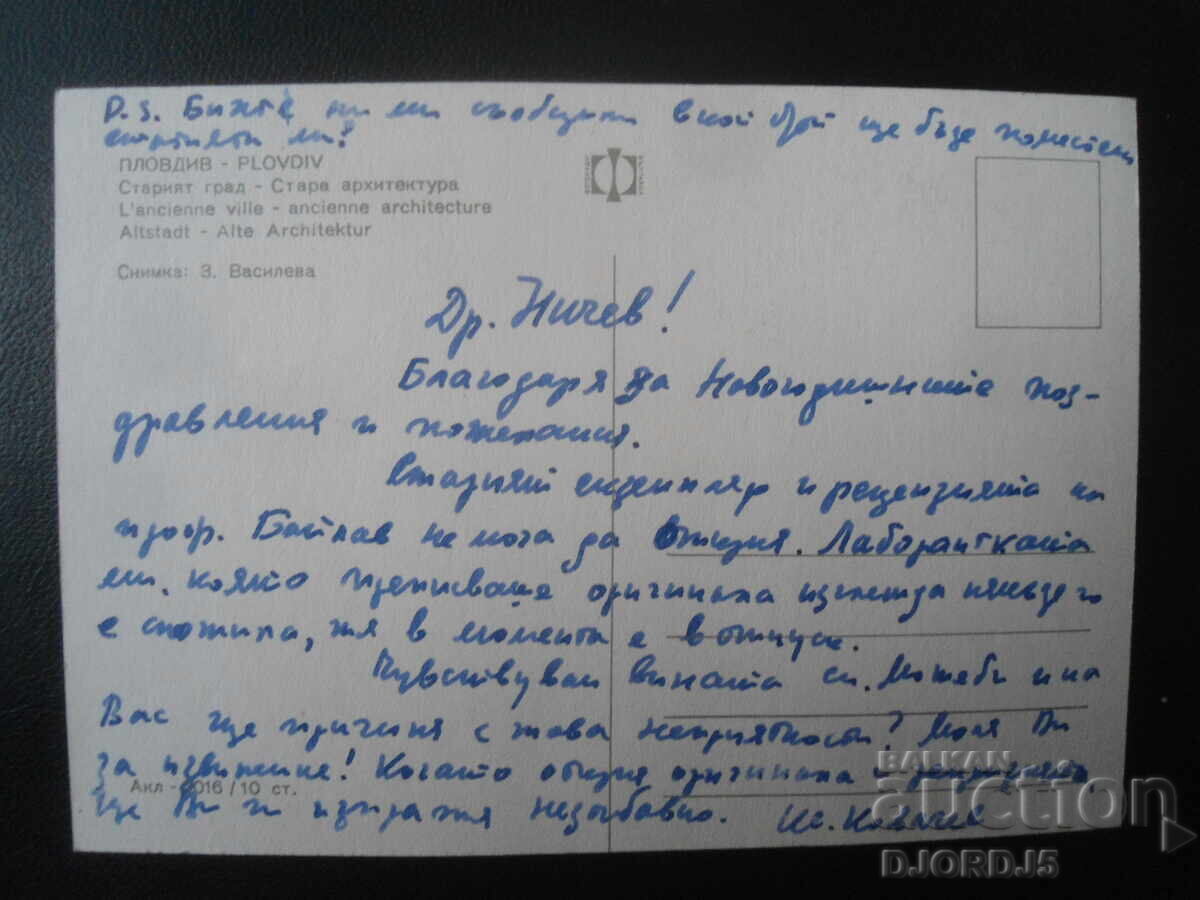 P.S. Бихте ли ми съобщили в кой брой ще бъде поместена
статията ми?
ПЛОВДИВ - PLOVDIV
Старият град - Стара архитектура
L'ancienne ville - ancienne architecture
Altstadt - Alte Architektur
Снимка: З. Василева
Др. Ничев!
Благодаря за Новогодишните поз-
дравления и пожелания.
Вторият екземпляр и рецензията на
проф. не мога да открия. Лаборантката
ми, която преписваше оригинала изглежда някъде го
е сложила, тя в момента е в отпуск.
Чувствувам вината си. Може би и на
Вас ще причиня с това неприятности? Моля Ви
за извинение! Когато открия оригинала и рецензията,
ще Ви ги изпратя незабавно.
Акл - 2016/10 ст.
BALKAN
auction
DJORDJ5